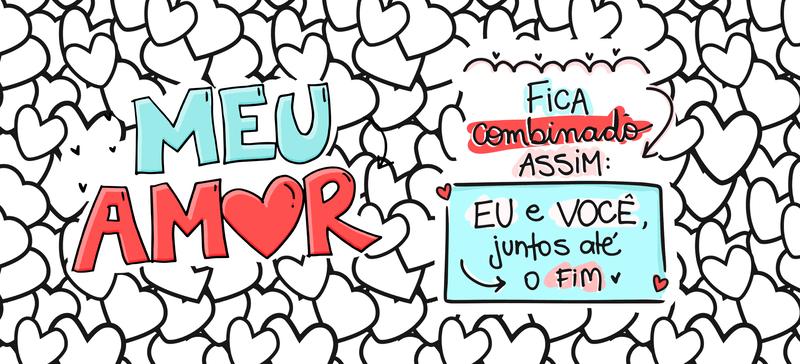 MEU
AMOR
FiCA
combinado
ASSiM:
EU e VOCÊ,
juntos até
o FiM